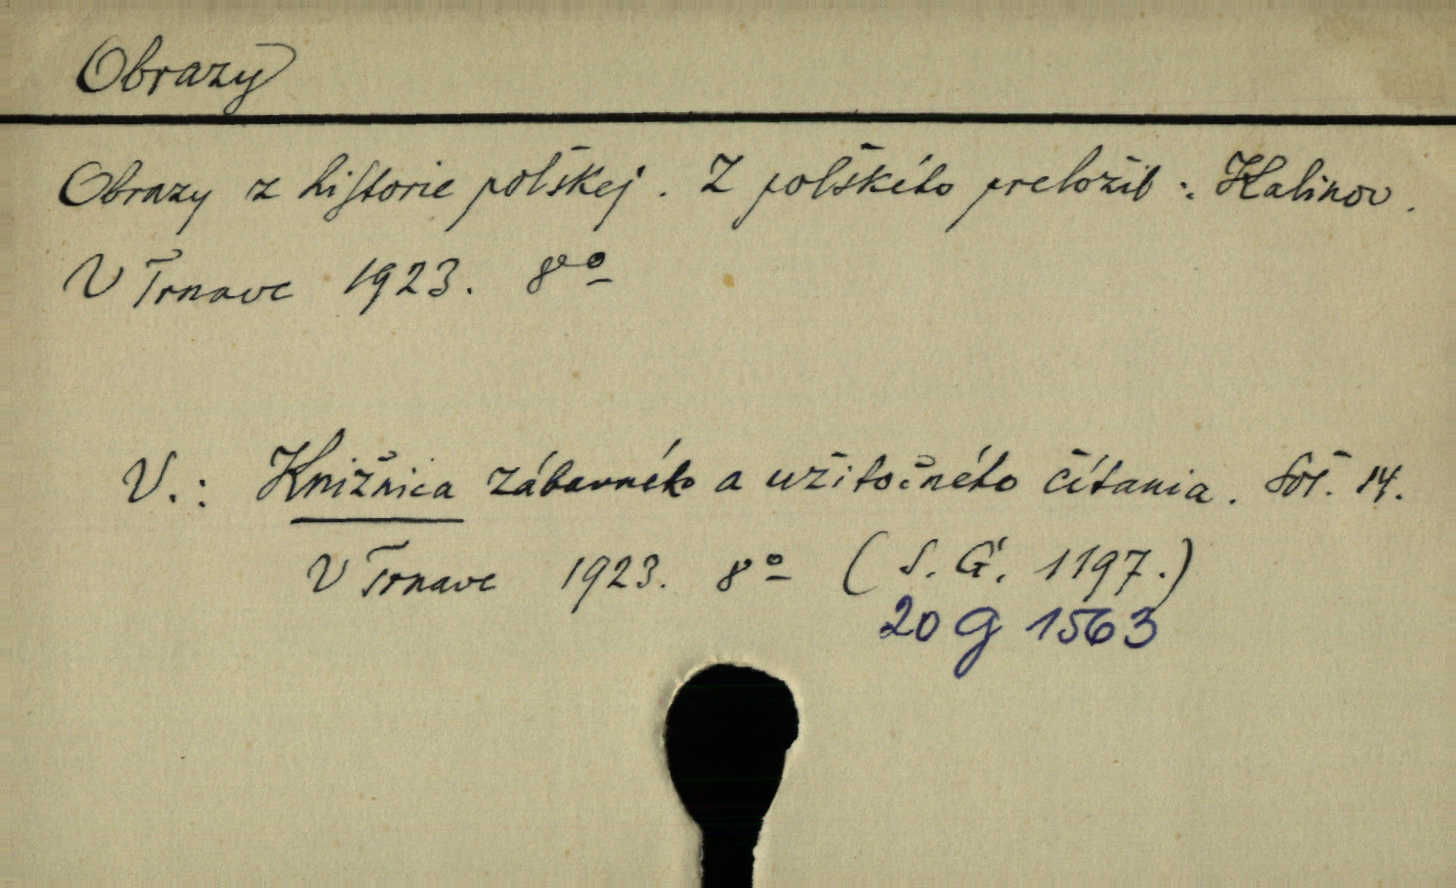 Obrazy
Obrazy z historie polskej. Z polského preložil: Kalinov.
V Trnave 1923. 8°
V.: Knižnica zábavného a užitočného čítania. Soš. 14.
V Trnave 1923. 8° (S. G. 1197.)
20 G 1563